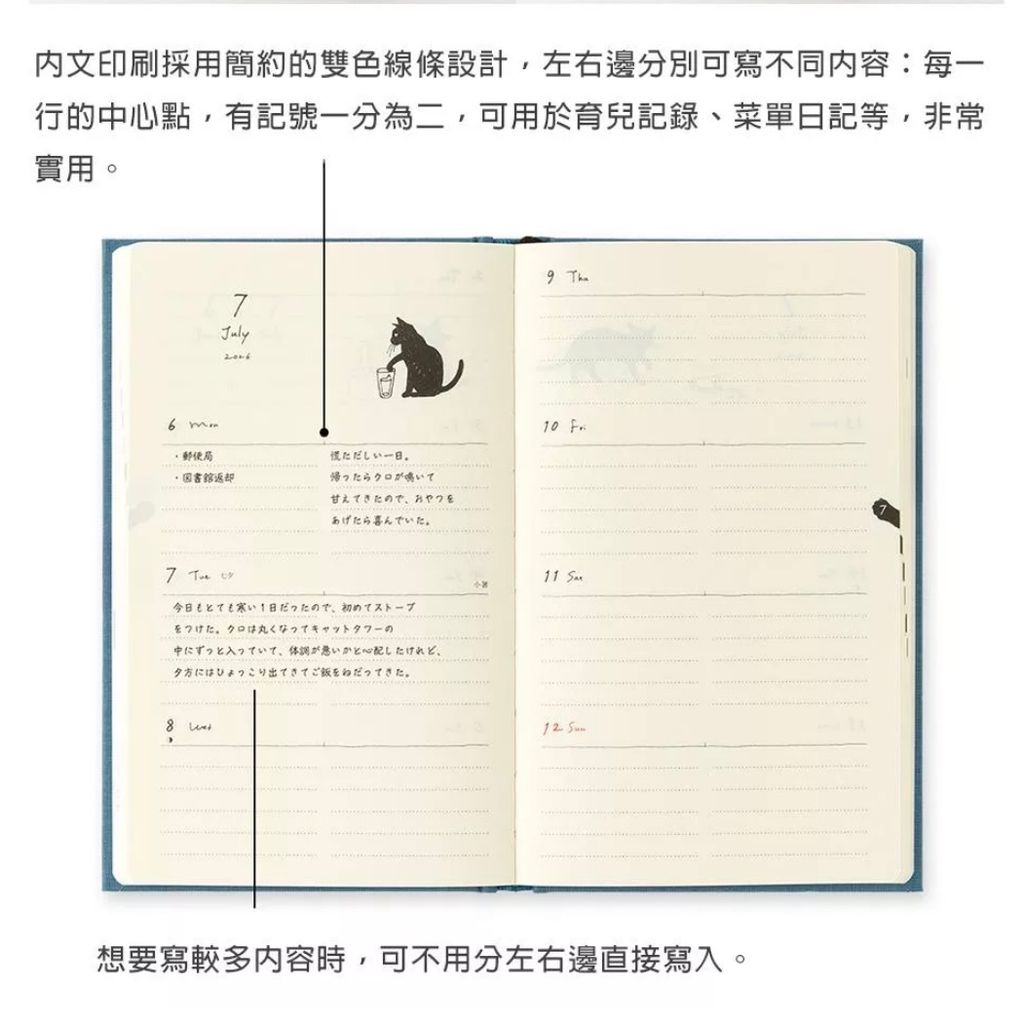 内文印刷採用簡約的雙色線條設計，左右邊分別可寫不同内容：每一
行的中心點，有記號一分為二，可用於育兒記錄、菜單日記等，非常
實用。
7
July
2026
6 Mon
・郵便局
・図書館返却
慌ただしい一日。
帰ったらクロが鳴いて
甘えてきたので、おやつを
あげたら喜んでいた。
7 Tue 七夕
小暑
今日もとても寒い1日だったので、初めてストーブ
をつけた。クロは丸くなってキャットタワーの
中にずっと入っていて、体調が悪いかと心配したけれど、
夕方にはひょっこり出てきてご飯をねだってきた。
8 Wed
9 Thu
10 Fri
7
11 Sat
12 Sun
想要寫較多内容時，可不用分左右邊直接寫入。